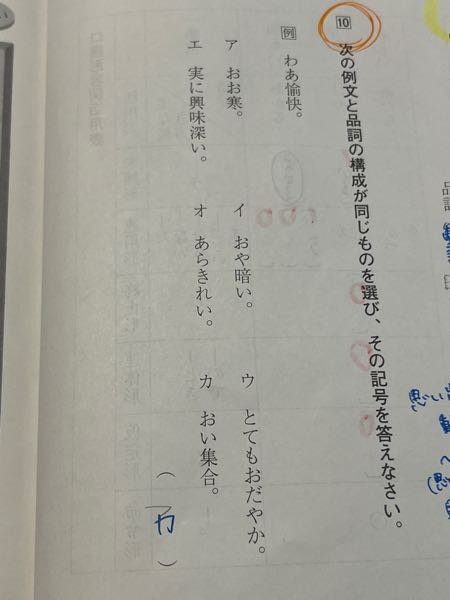 10 次の例文と品詞の構成が同じものを選び、その記号を答えなさい。
例 わあ愉快。
ア おお寒。
イ おや暗い。
ウ とてもおだやか。
エ 実に興味深い。
オ あらきれい。
カ おい集合。
(カ)